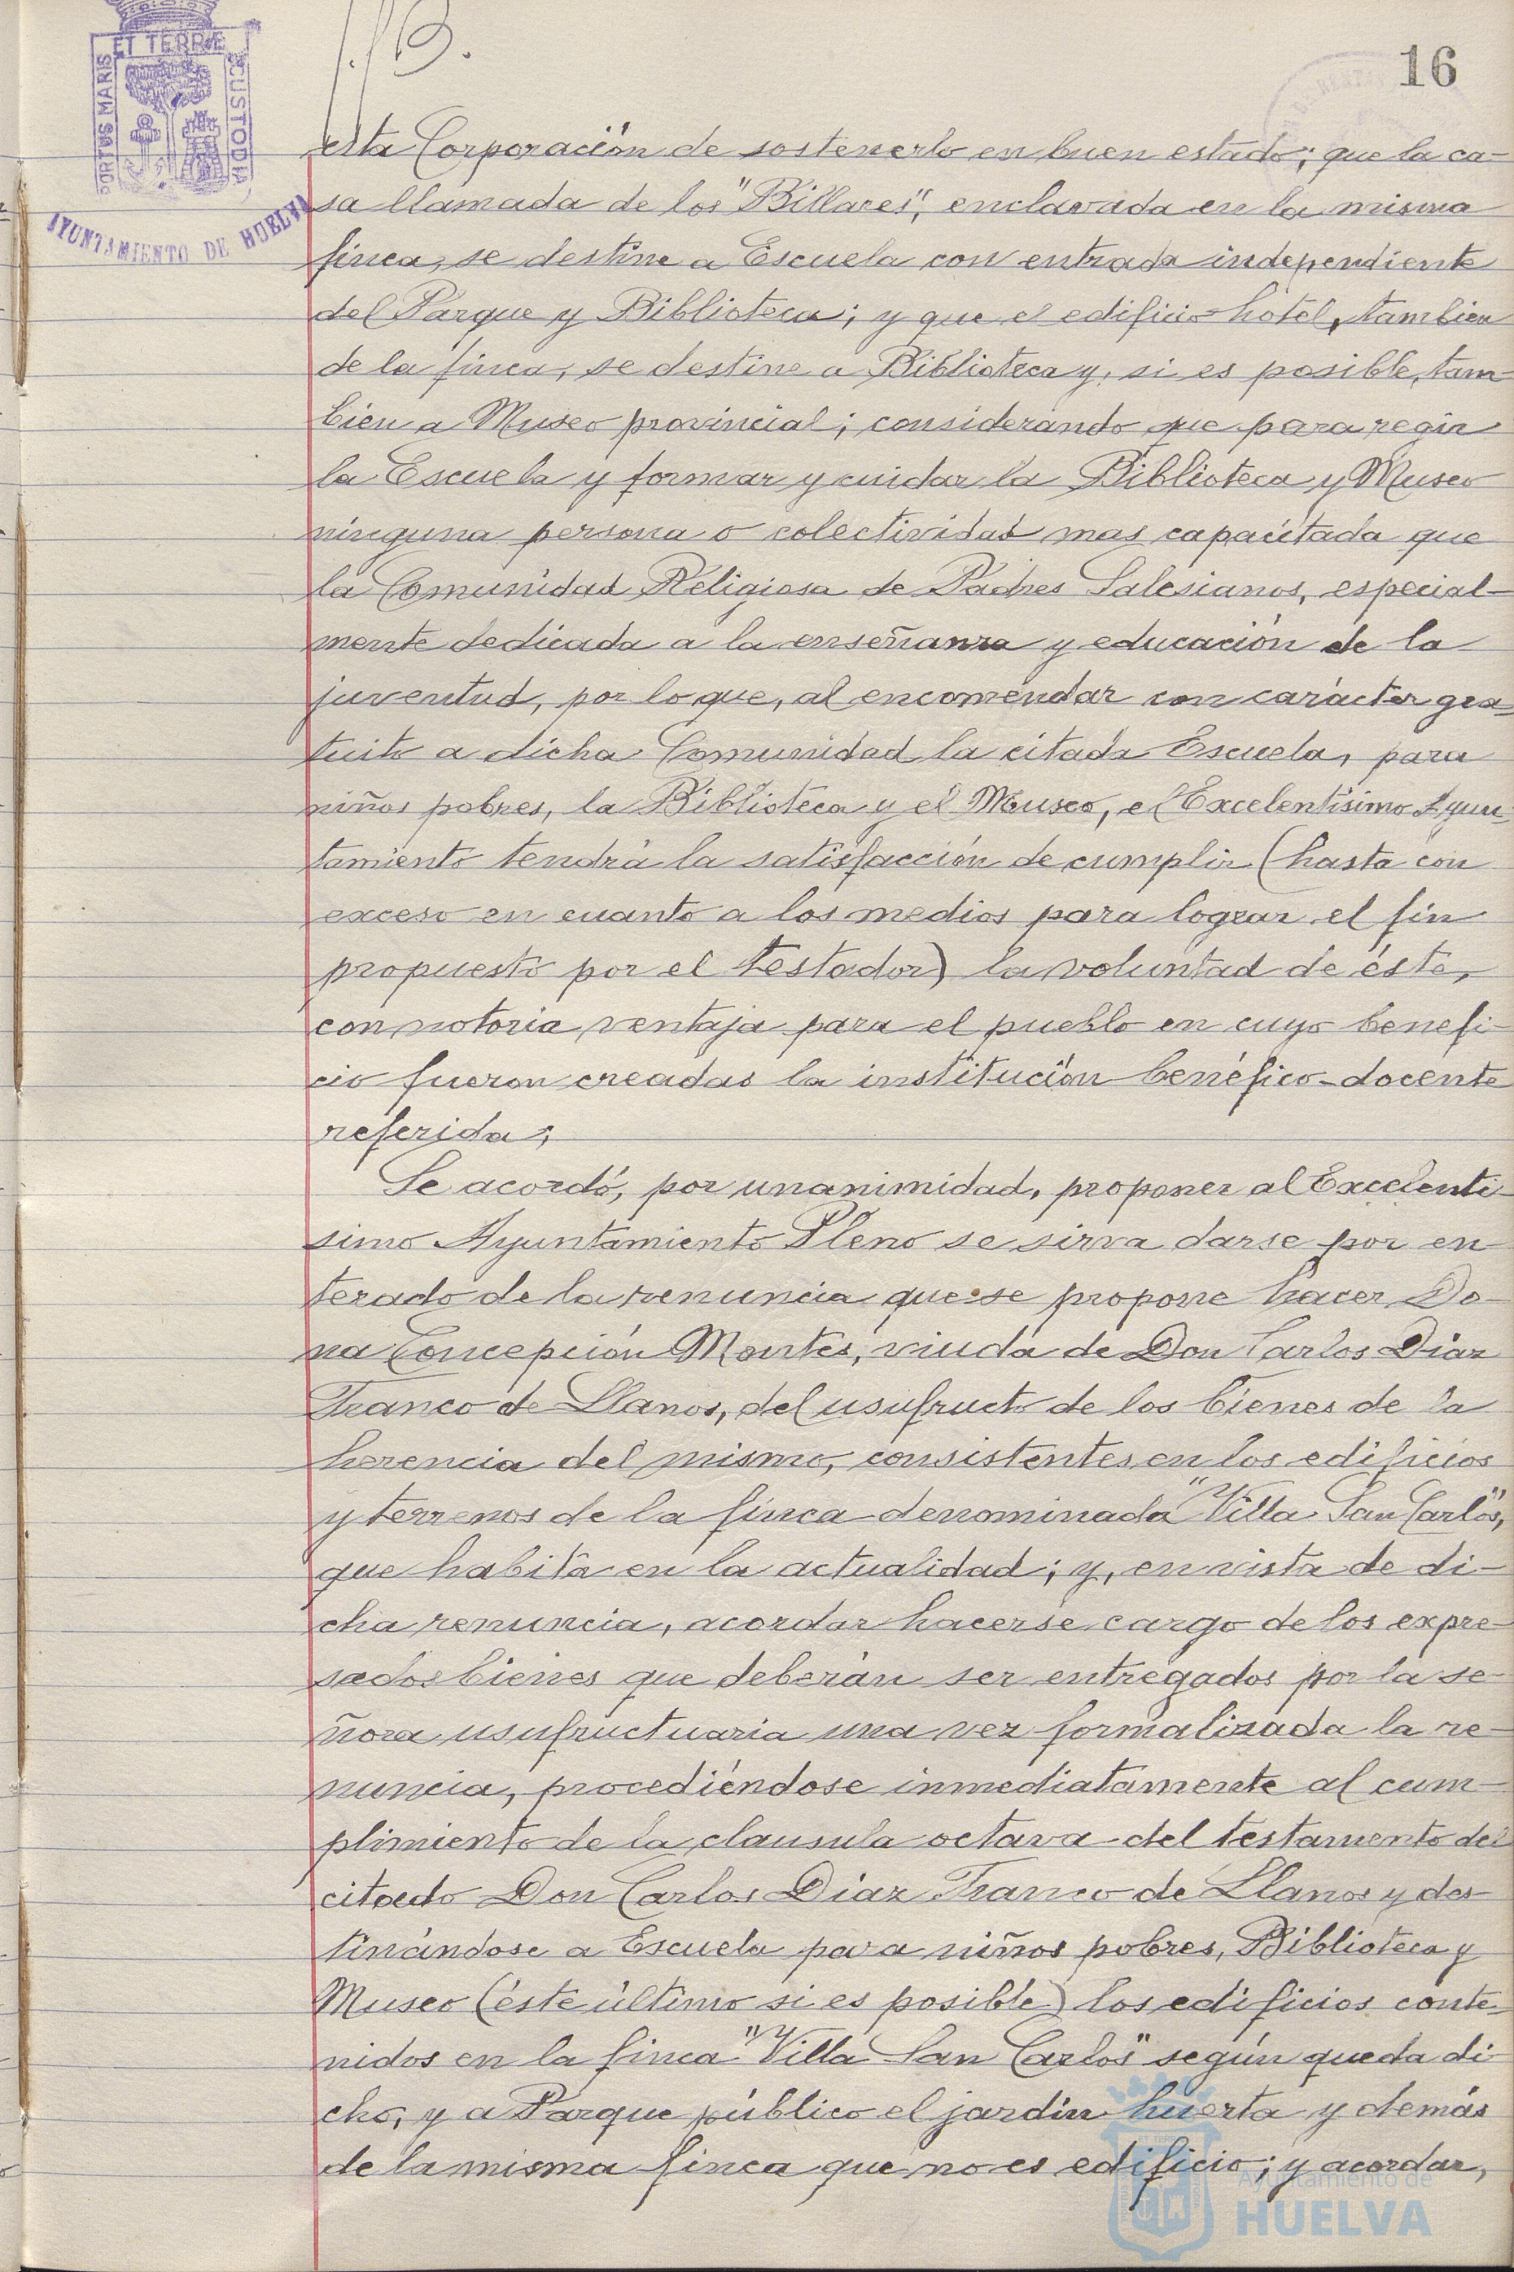 16
PORTUS MARIS ET TERRÆ CUSTODIA
AYUNTAMIENTO DE HUELVA
esta Corporación de sostenerlo en buen estado; que la ca-
sa llamada de los "Billares", enclavada en la misma
finca, se destine a Escuela con entrada independiente
del Parque y Biblioteca; y que el edificio-hotel, tambien
de la finca, se destine a Biblioteca y, si es posible, tam-
bien a Museo provincial; considerando que para regir
la Escuela y formar y cuidar la Biblioteca y Museo
ninguna persona o colectividad mas capacitada que
la Comunidad Religiosa de Padres Salesianos, especial-
mente dedicada a la enseñanza y educación de la
juventud, por lo que, al encomendar con carácter gra-
tuito a dicha Comunidad la citada Escuela, para
niños pobres, la Biblioteca y el Museo, el Excelentísimo Ayun-
tamiento tendrá la satisfacción de cumplir (hasta con
exceso en cuanto a los medios para lograr el fin
propuesto por el testador) la voluntad de éste,
con notoria ventaja para el pueblo en cuyo benefi-
cio fueron creadas la institución benéfico-docente
referida;
Se acordó, por unanimidad, proponer al Excelentí-
simo Ayuntamiento Pleno se sirva darse por en-
terado de la renuncia que se propone hacer Do-
na Concepción Montes, viuda de Don Carlos Diaz
Franco de Llanos, del usufructo de los bienes de la
herencia del mismo, consistentes en los edificios
y terrenos de la finca denominada "Villa San Carlos",
que habita en la actualidad; y, en vista de di-
cha renuncia, acordar hacerse cargo de los expre-
sados bienes que deberán ser entregados por la se-
ñora usufructuaria una vez formalizada la re-
nuncia, procediéndose inmediatamente al cum-
plimiento de la clausula octava del testamento del
citado Don Carlos Diaz Franco de Llanos y des-
tinándose a Escuela para niños pobres, Biblioteca y
Museo (éste último si es posible) los edificios conte-
nidos en la finca "Villa San Carlos" según queda di-
cho, y a Parque público el jardín huerta y demás
de la misma finca que no es edificio; y acordar,
Ayuntamiento de
HUELVA